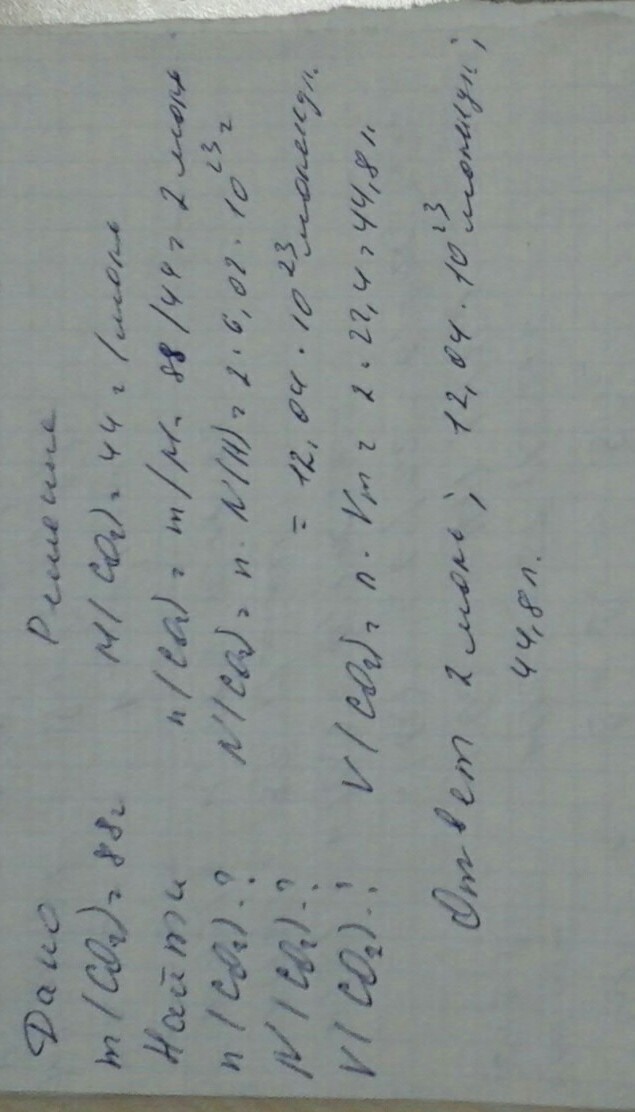 Дано
m(CO₂)=88г
Найти
n(CO₂)-?
N(CO₂)-?
V(CO₂)-?
Решение
M(CO₂)=44г/моль
n(CO₂)=m/M=88/44=2 моль
N(CO₂)=n·N(A)=2·6,02·10²³=
=12,04·10²³ молекул.
V(CO₂)=n·Vm=2·22,4=44,8л.
Ответ 2 моль; 12,04·10²³ молекул;
44,8л.